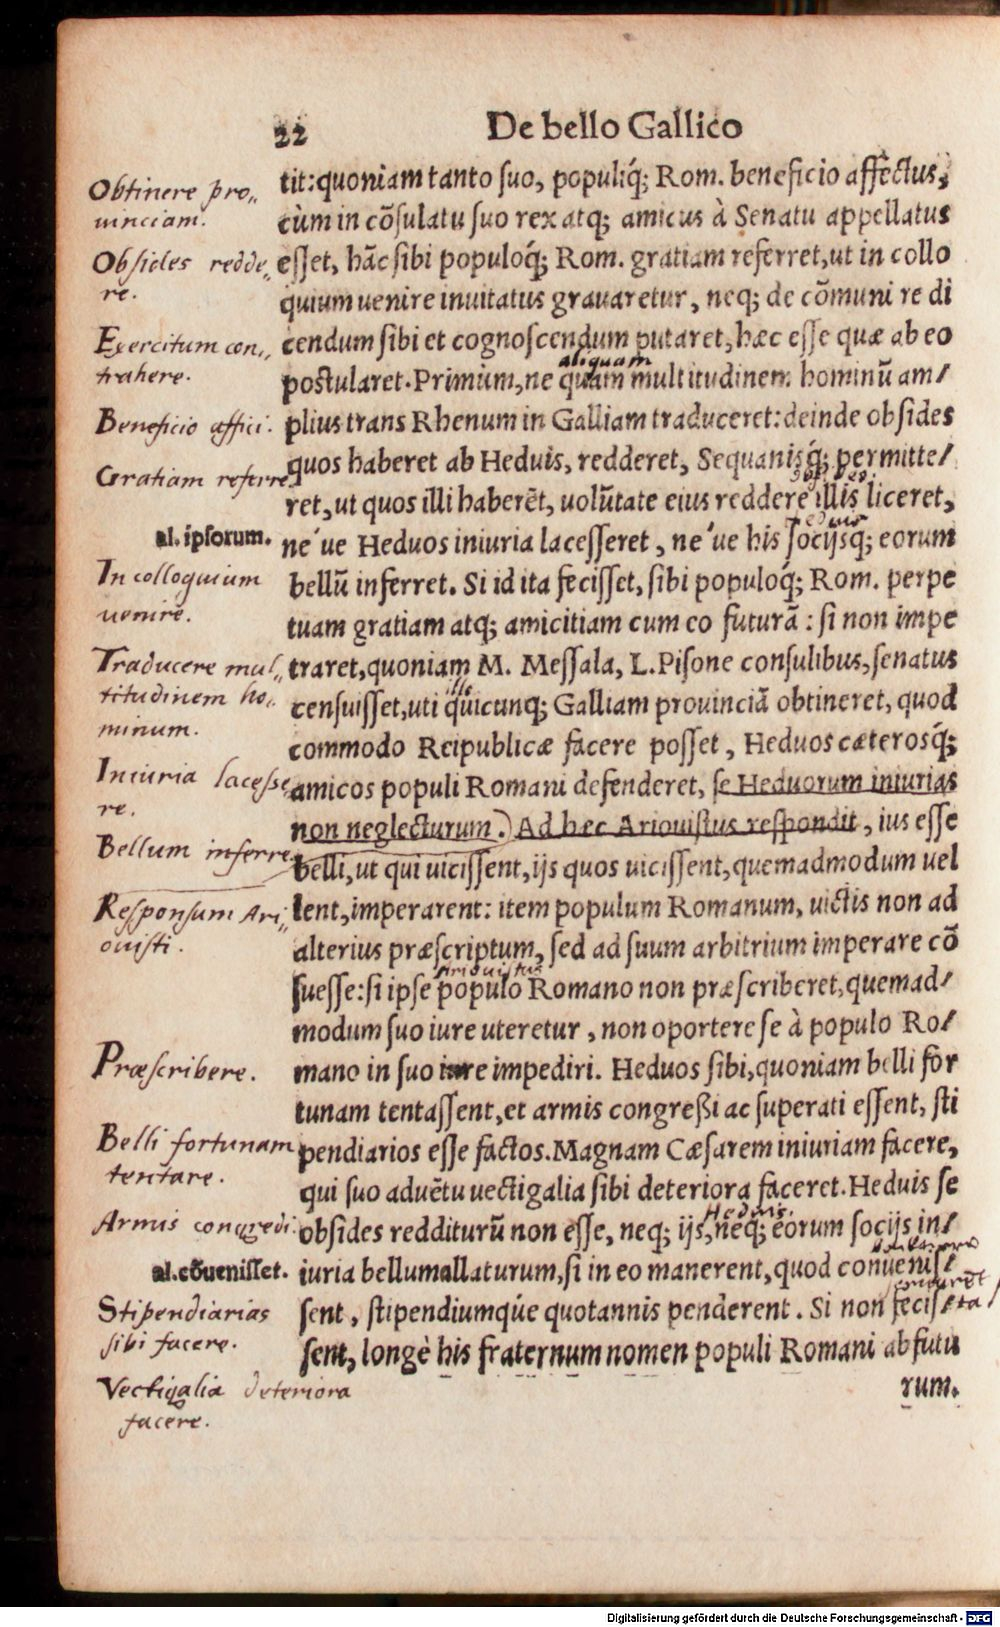 22
De bello Gallico
tit: quoniam tanto suo, populiq́; Rom. beneficio affectus,
cùm in cōsulatu suo rex atq; amicus à Senatu appellatus
esset, hāc sibi populoq́; Rom. gratiam referret, ut in collo
quium uenire inuitatus grauaretur, neq; de cōmuni re di
cendum sibi et cognoscendum putaret, hæc esse quæ ab eo
aliquam
postularet. Primùm, ne quam multitudinem hominū am/
plius trans Rhenum in Galliam traduceret: deinde obsides
quos haberet ab Heduis, redderet, Sequanisq́; permitte/
ret, ut quos illi haberēt, uolūtate eius reddere illis liceret,
ne´ue Heduos iniuria lacesseret, ne´ue his socijsq; eorum
bellū inferret. Si id ita fecisset, sibi populoq́; Rom. perpe
tuam gratiam atq; amicitiam cum eo futurā: si non impe
traret, quoniam M. Messala, L. Pisone consulibus, senatus
censuisset, uti quicunq; Galliam prouinciā obtineret, quod
commodo Reipublicæ facere posset, Heduos cæterosq́;
amicos populi Romani defenderet, se Heduorum iniurias
non neglecturum.) Ad hec Ariouistus respondit, ius esse
belli, ut qui uicissent, ijs quos uicissent, quemadmodum uel
lent, imperarent: item populum Romanum, uictis non ad
alterius præscriptum, sed ad suum arbitrium imperare cō
Ariouistus
suesse: si ipse populo Romano non præscriberet, quemad/
modum suo iure uteretur, non oportere se à populo Ro/
mano in suo iure impediri. Heduos sibi, quoniam belli for
tunam tentassent, et armis congreßi ac superati essent, sti
pendiarios esse factos. Magnam Cæsarem iniuriam facere,
qui suo aduētu uectigalia sibi deteriora faceret. Heduis se
Heduis.
obsides redditurū non esse, neq; ijs, neq; eorum socijs in/
iuria bellum allaturum, si in eo manerent, quod conuenis/
sent, stipendiumq́ue quotannis penderent. Si non fecis/
sent, longè his fraternum nomen populi Romani abfutu
rum.
Obtinere pro„
uinciam.
Obsides redde„
re.
Exercitum con„
trahere.
Beneficio affici.
Gratiam referre.
al. ipsorum.
In colloquium
uenire.
Traducere mul„
titudinem ho„
minum.
Iniuria lacesse
re.
Bellum inferre.
Responsum Ari„
ouisti.
Præscribere.
Belli fortunam
tentare.
Armis congredi.
al. cōuenisset.
Stipendiarias
sibi facere.
Vectigalia deteriora
facere.
Digitalisierung gefördert durch die Deutsche Forschungsgemeinschaft - DFG